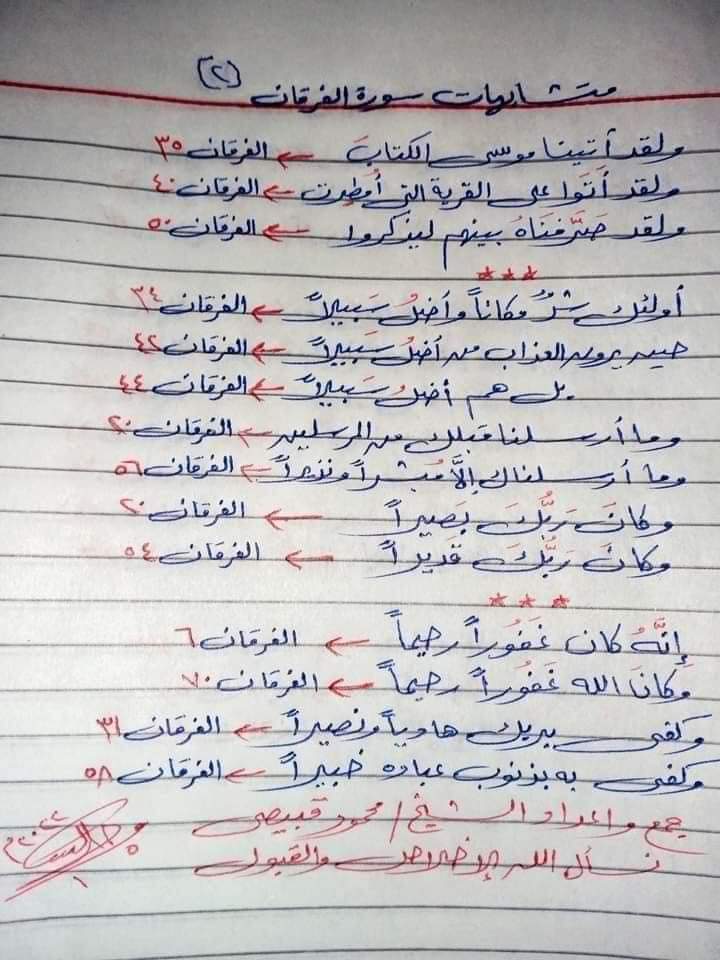 متشابهات سورة الفرقان (٢)
ولقد أتينا موسى الكتابَ ← الفرقان ٣٥
ولقد أَتَوا على القرية التي أُمطرت ← الفرقان ٤٠
ولقد صَرَّفنَاهُ بينهم ليذكروا ← الفرقان ٥٠
***
أولئك شرٌ مكاناً وأضلُ سَبيلاً ← الفرقان ٣٤
حين يرون العذاب من أضلُ سَبيلاً ← الفرقان ٤٢
بل هم أضلُ سَبيلاً ← الفرقان ٤٤
وما أرسلنا قبلك من المرسلين ← الفرقان ٢٠
وما أرسلناك إلَّا مُبشراً ونذيراً ← الفرقان ٥٦
وكانَ رَبُّكَ بَصيراً ← الفرقان ٢٠
وكانَ رَبُّكَ قَديراً ← الفرقان ٥٤
***
إنَّهُ كان غَفُوراً رحيماً ← الفرقان ٦
وكانَ الله غَفُوراً رحيماً ← الفرقان ٧٠
وكفى بربك هادياً ونصيراً ← الفرقان ٣١
وكفى به بذنوب عباده خبيراً ← الفرقان ٥٨
جمع واعداد الشيخ / محمود قبيصي
نسأل الله الإخلاص والقبول